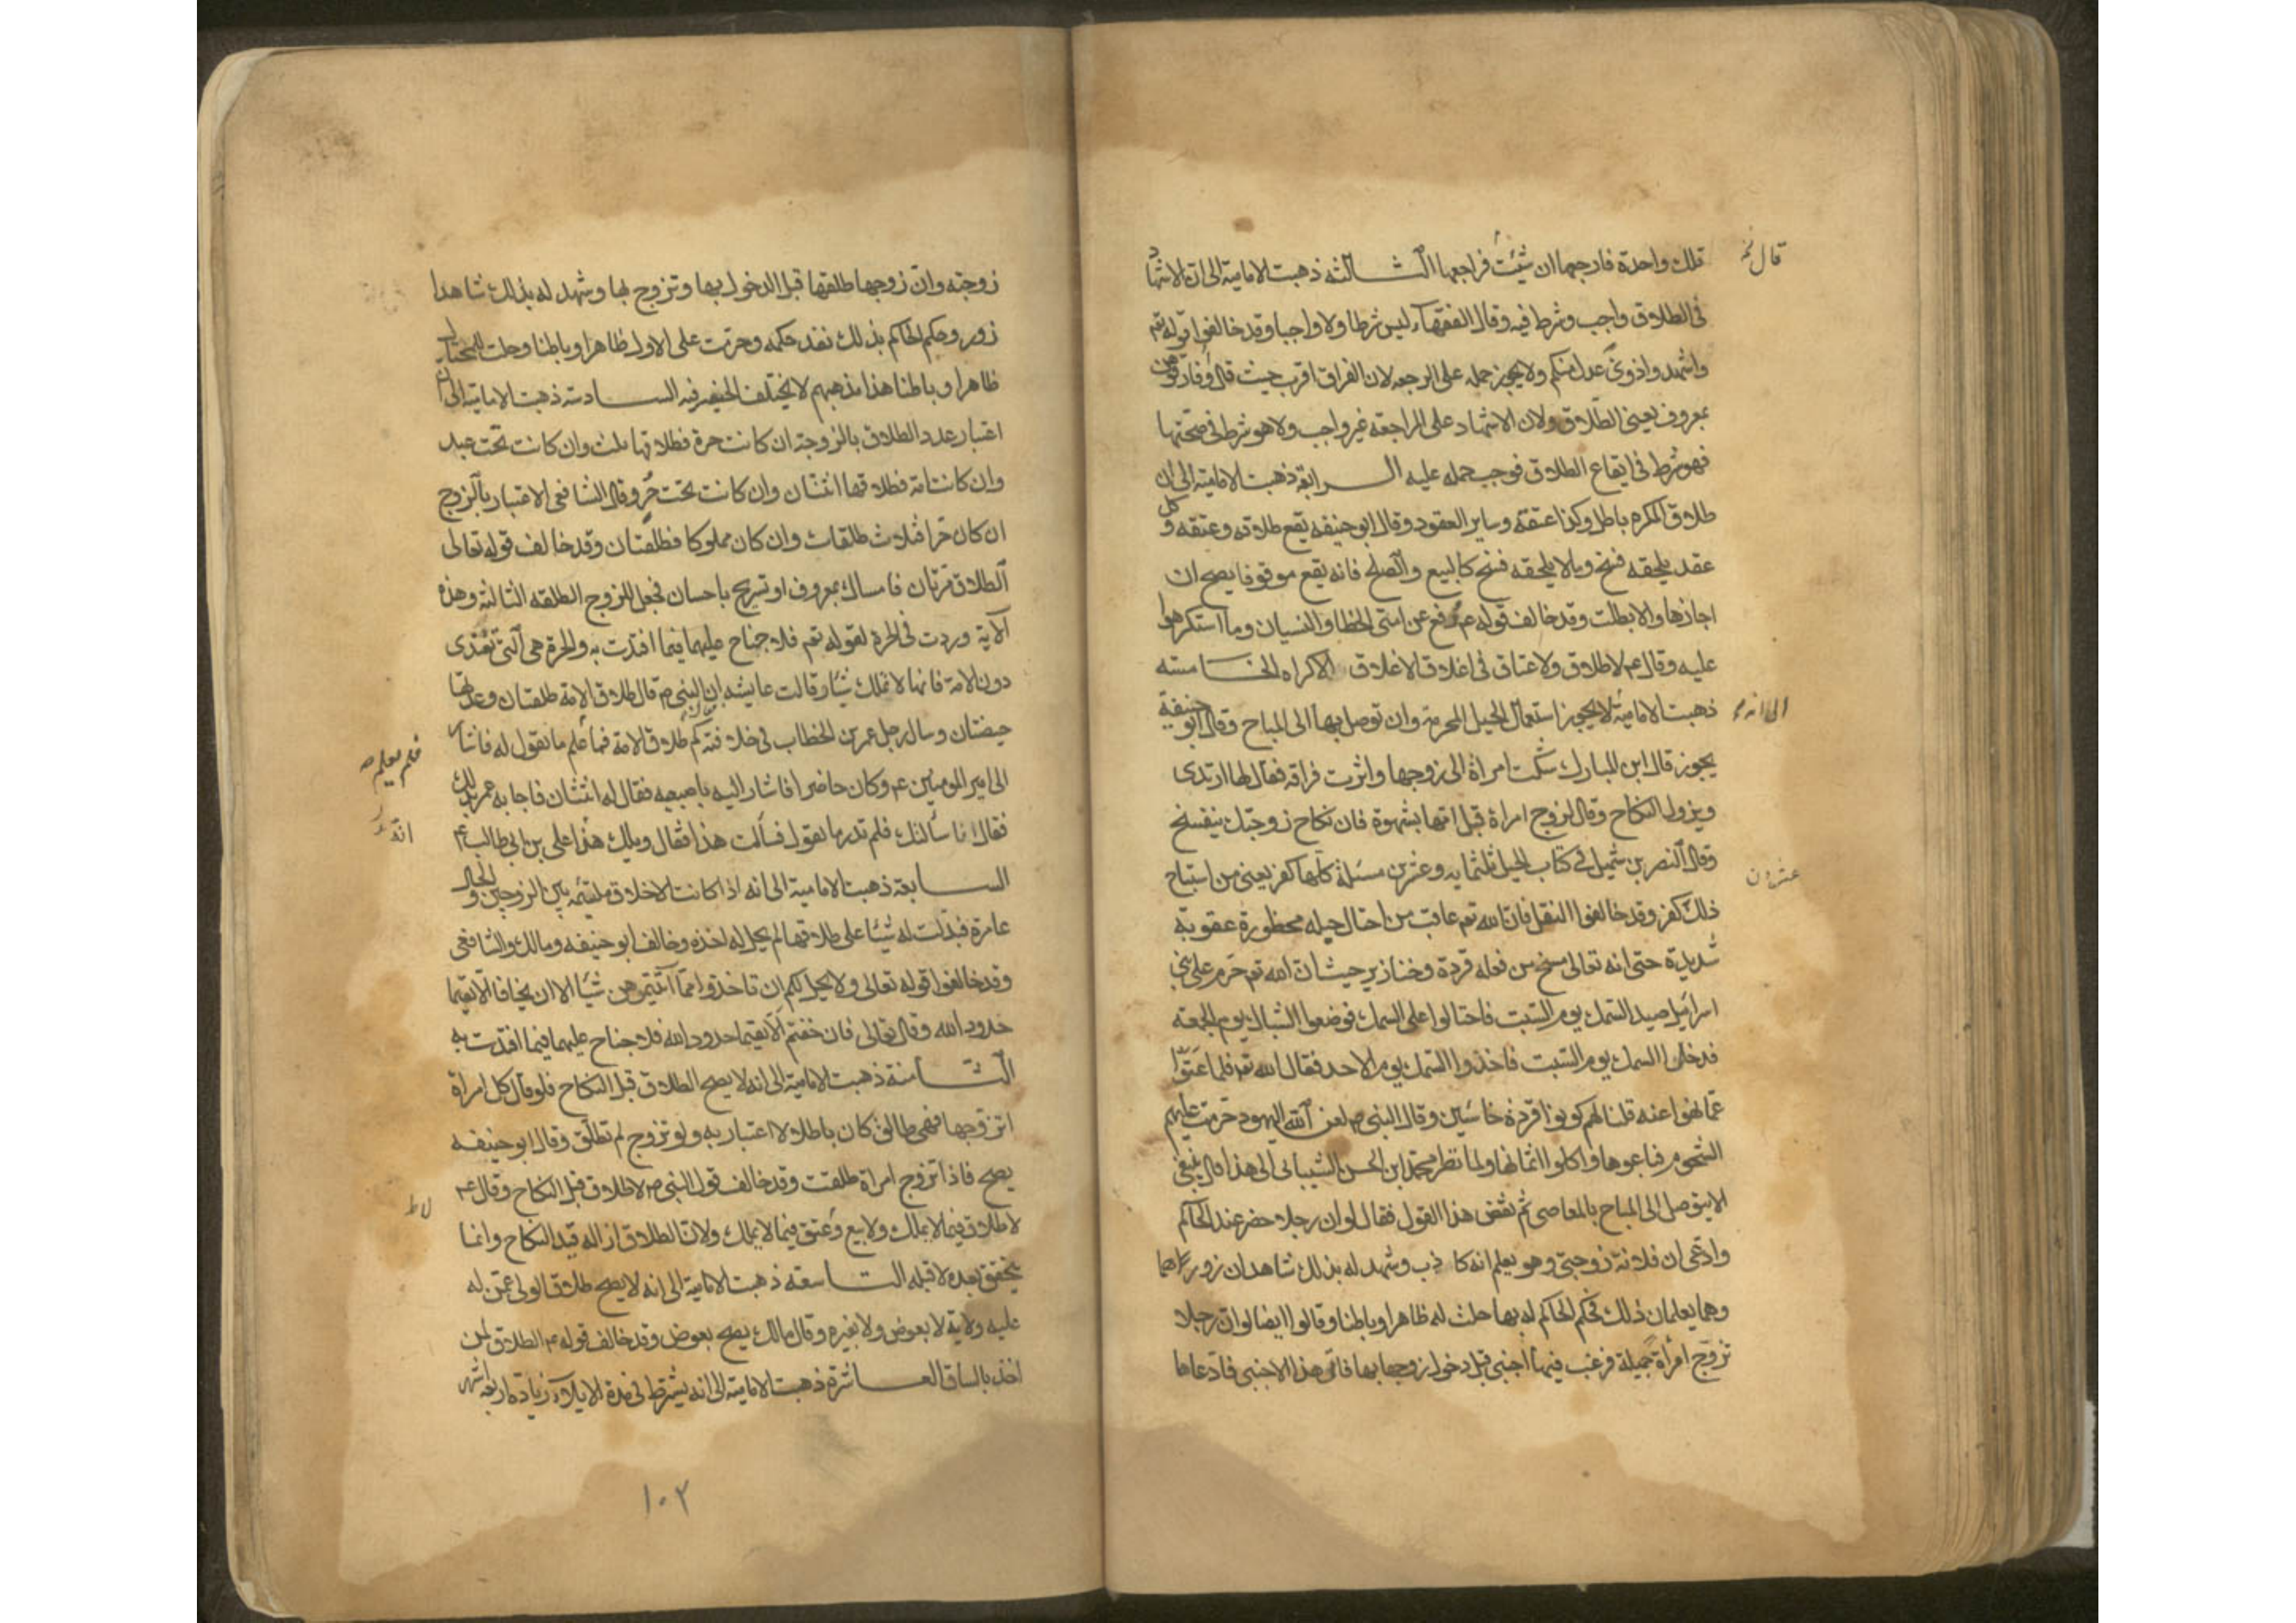 قال نخ
تلك واحدة فارجعها ان شئت فراجعها الثالثة ذهبت الامامية الى ان الاشهاد
فى الطلاق واجب وشرط فيه وقال الفقهاء ليس شرطا ولا واجبا وقد خالفوا قوله تع
واشهدوا ذوى عدل منكم ولا يجوز حمله على الرجعه لان الفراق اقرب حيث قال او فارقوهن
بمعروف يعنى الطلاق ولان الاشهاد على المراجعة غير واجب ولا هو شرط فى صحتها
فهو شرط فى ايقاع الطلاق فوجب حمله عليه الرابعة ذهبت الامامية الى ان
طلاق المكره باطل وكذا عتقه وساير العقود وقال ابو حنيفه يقع طلاقه وعتقه وكل
عقد يلحقه فسخ وما لا يلحقه فسخ كالبيع والصلح فانه يقع موقوفا يصح ان
اجازها والا بطلت وقد خالف قوله ع رفع عن امتى الخطا والنسيان وما استكرهوا
عليه وقال ع لا طلاق ولا عتاق فى اغلاق الاغلاق الاكراه الخامسة
ذهبت الامامية لا يجوز استعمال الحيل المحرمة وان توصل بها الى المباح وقال ابو حنيفة
الى انه
يجوز قال ابن المبارك شكت امراة الى زوجها واثرت فراقه فقال لها ارتدى
ويزول النكاح وقال لزوج امراة قبل امها بشهوة فان نكاح زوجتك ينفسخ
وقال النضر بن شميل فى كتاب الحيل ثلثمايه وعشرين مسئلة كلها كفر يعنى من استباح
عشرون
ذلك كفر وقد خالفوا النقل فان الله تع عاقب من احتال حيله محظورة عقوبة
شديدة حتى انه تعالى مسخ من فعله قردة وخنازير حيث ان الله تع حرم على بنى
اسرائيل صيد السمك يوم السبت فاحتالوا على السمك فوضعوا الشباك يوم الجمعة
فدخل السمك يوم السبت فاخذوا السمك يوم الاحد فقال الله تع فلما عتوا
عما نهوا عنه قلنا لهم كونوا قردة خاسئين وقال النبى ص لعن الله اليهود حرمت عليهم
الشحوم فباعوها واكلوا اثمانها ولما نظر محمد ابن الحسن الشيبانى الى هذا قال ينبغى
الا يتوصل الى المباح بالمعاصى ثم نقض هذا القول فقال لو ان رجلا حضر عند الحاكم
وادعى ان فلانة زوجتى وهو يعلم انه كاذب وشهد له بذلك شاهدان زور
وهما يعلمان ذلك فحكم الحاكم له بها حلت له ظاهرا وباطنا وقالوا ايضا لو ان رجلا
تزوج امرأة جميلة فرغب فيها اجنبى قبل دخول زوجها بها فاتى هذا الاجنبى فادعاها
زوجته وان زوجها طلقها قبل الدخول بها وتزوج بها وشهد له بذلك شاهدا
زور وحكم الحاكم بذلك نفذ حكمه وحرمت على الاول ظاهرا وباطنا وحلت للمحتال
ظاهرا وباطنا هذا مذهبهم لا يختلف الحنفية فيه السادسة ذهبت الامامية الى ان
اعتبار عدد الطلاق بالزوجة ان كانت حرة فطلاقها ثلث وان كانت تحت عبد
وان كانت امة فطلاقها اثنتان وان كانت تحت حر وقال الشافعى الاعتبار بالزوج
ان كان حرا فثلاث طلقات وان كان مملوكا فطلقتان وقد خالف قوله تعالى
الطلاق مرتان فامساك بمعروف او تسريح باحسان فجعل للزوج الطلقه الثالثة وهذه
الآية وردت فى الحرة لقوله تع فلا جناح عليهما فيما افتدت به والحرة هى التى تفتدى
دون الامة فانها لا تملك شيئا وقالت عايشه ان النبى ص قال طلاق الامة طلقتان وعدتها
حيضتان وسال رجل عمر بن الخطاب فى خلافته كم طلاق الامة فما علم ما نقول له فاشار
فلم يعلم
الى امير المومنين ع وكان حاضرا فاشار اليه باصبعيه فقال له اثنتان فاجابه عمر بذلك
فقال انا سألتك فلم تدر ما تقول فسألت هذا فقال ويلك هذا على بن ابى طالب ع
انه
السابعة ذهبت الامامية الى انه اذا كانت الاخلاق ملتئمة بين الزوجين والحال
عامرة فبذلت له شيئا على طلاقها لم يحل له اخذه وخالف ابو حنيفه ومالك والشافعى
وقد خالفوا قوله تعالى ولا يحل لكم ان تاخذوا مما آتيتموهن شيئا الا ان يخافا الا يقيما
حدود الله وقال تعالى فان خفتم الا يقيما حدود الله فلا جناح عليهما فيما افتدت به
الثامنة ذهبت الامامية الى انه لا يصح الطلاق قبل النكاح فلو قال كل امراة
اتزوجها فهى طالق كان باطلا لا اعتبار به ولو تزوج لم تطلق وقال ابو حنيفه
يصح فاذا تزوج امراة طلقت وقد خالف قول النبى ص لا طلاق قبل النكاح وقال ع
لا طلاق فيما لا يملك ولا بيع وعتق فيما لا يملك ولان الطلاق ازاله قيد النكاح وانما
يتحقق بعده لا قبله التاسعة ذهبت الامامية الى انه لا يصح طلاق الولى عمن له
عليه ولاية لا بعوض ولا بغيره وقال مالك يصح بعوض وقد خالف قوله ع الطلاق لمن
اخذ بالساق العاشرة ذهبت الامامية الى انه يشترط فى مدة الايلاء زيادة اربعة اشهر
١٠٢